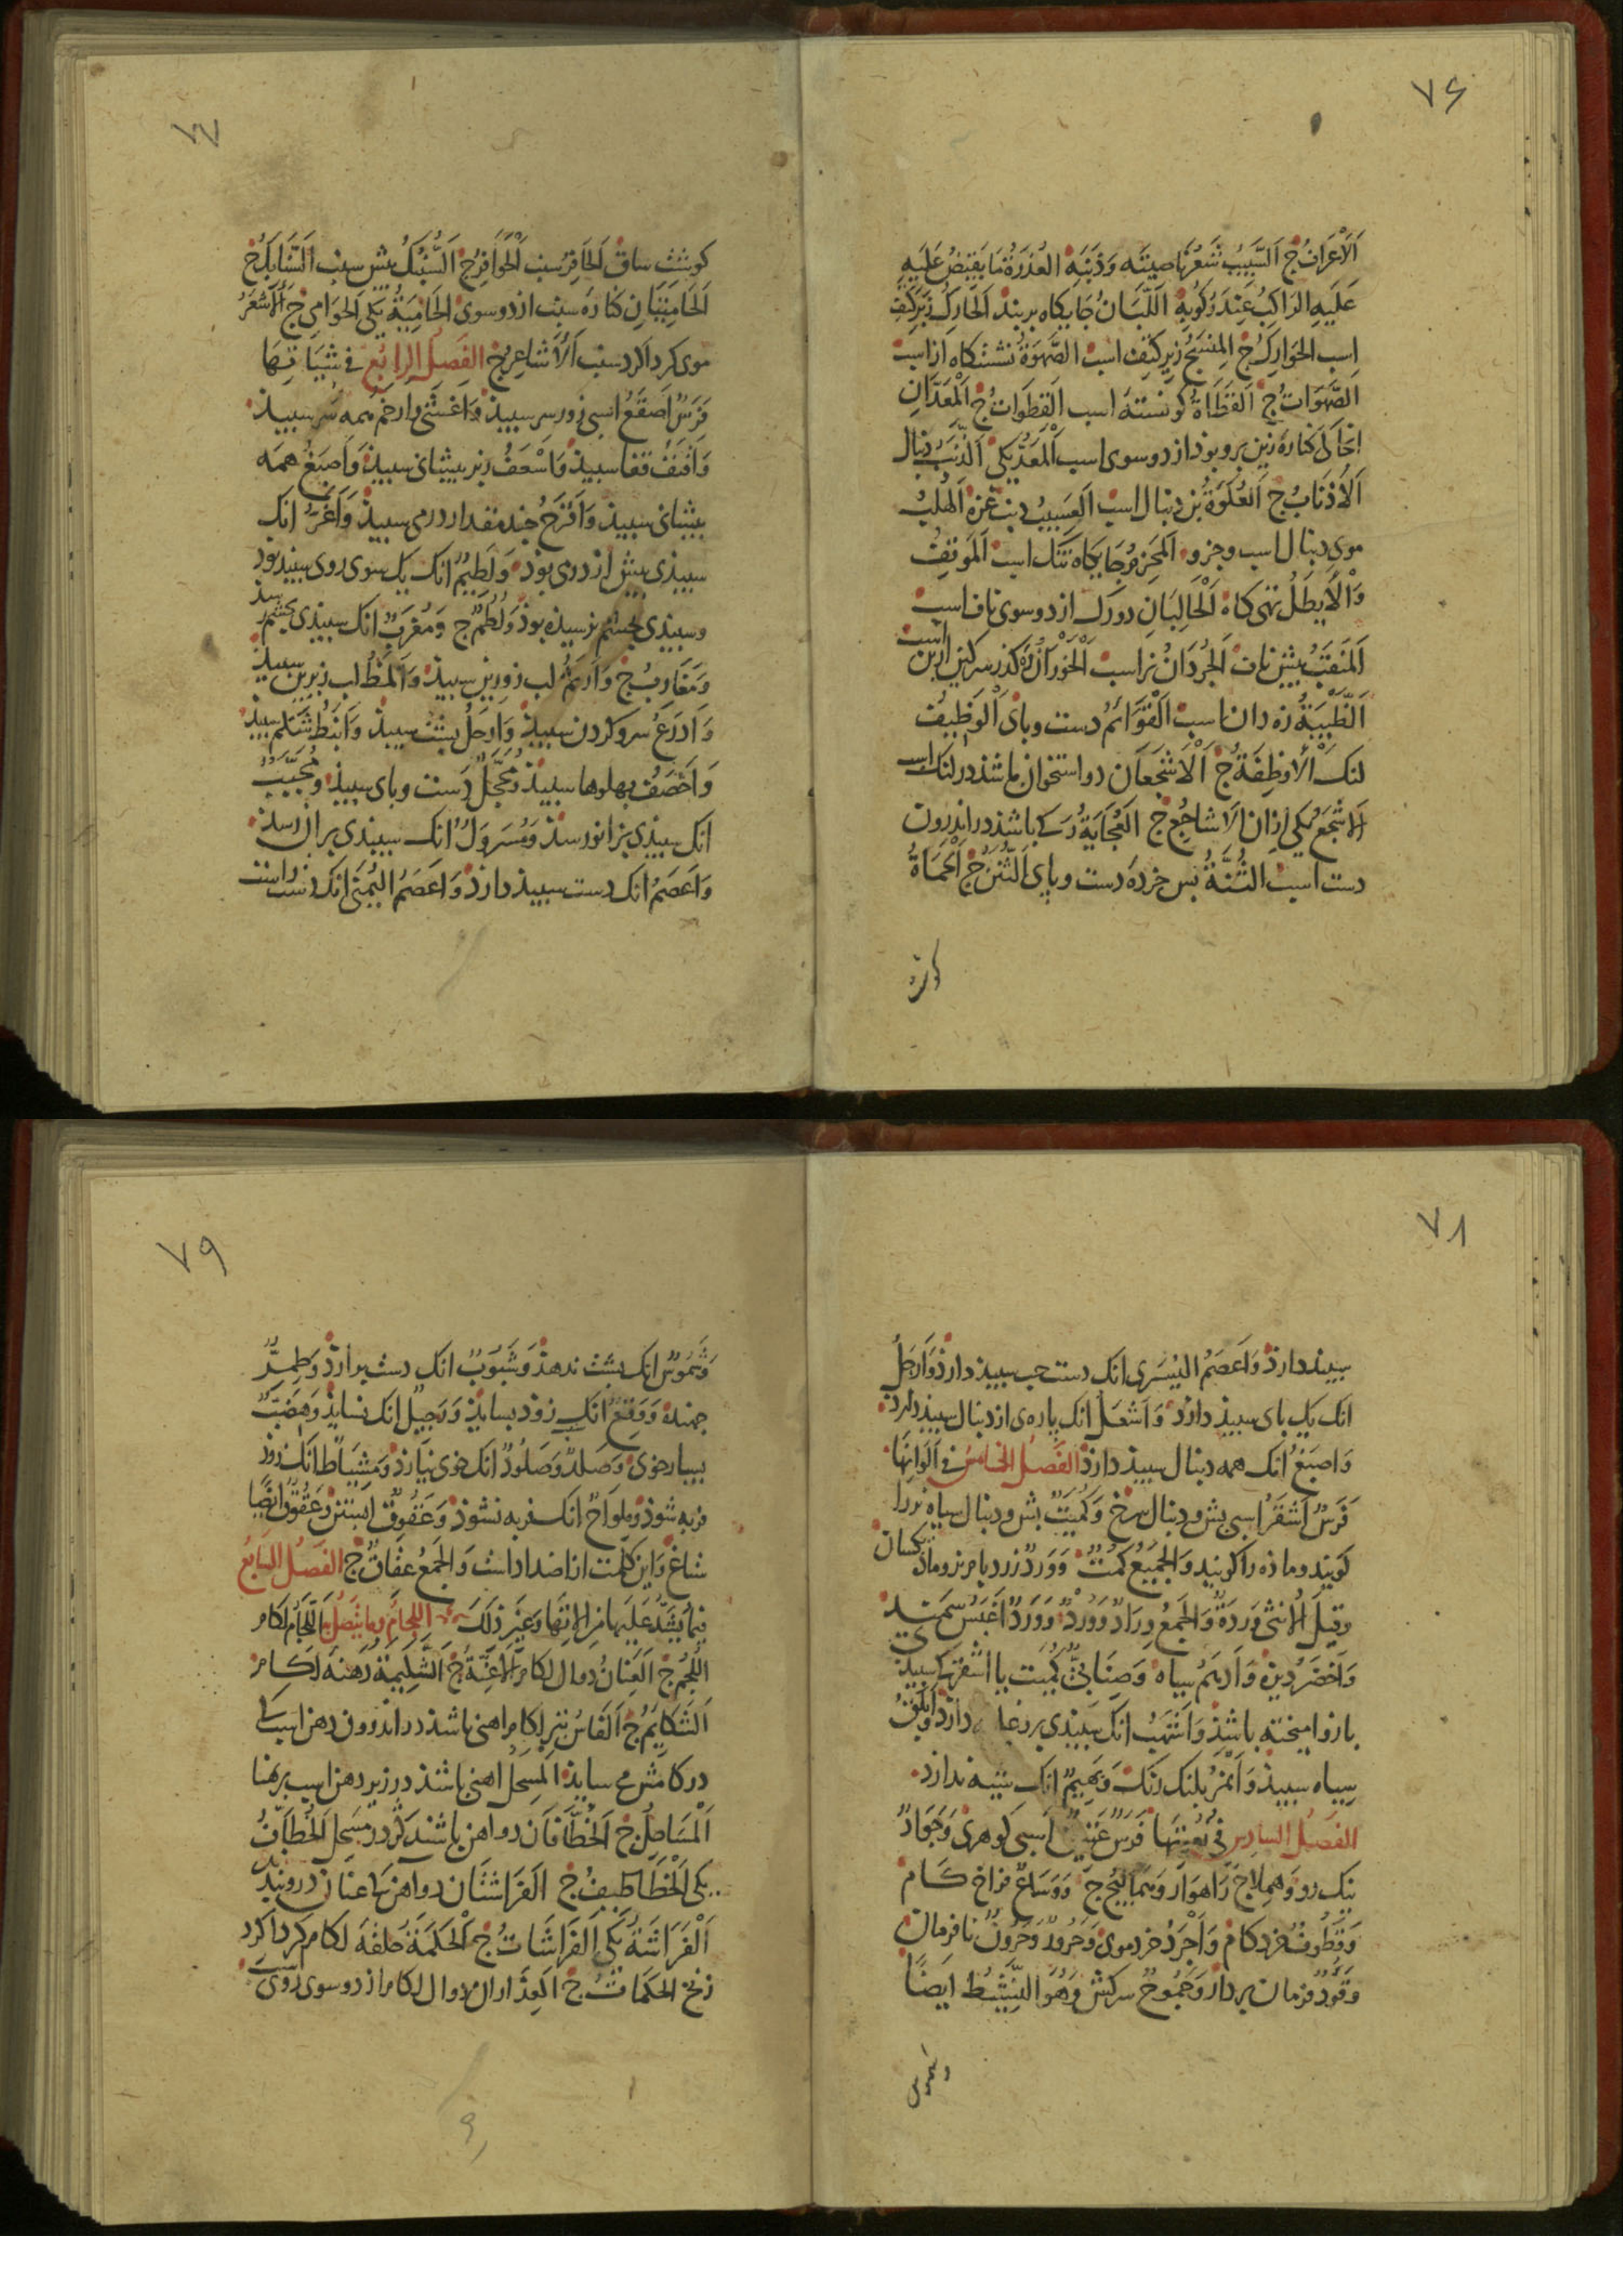 ٧٦
اَلْاَعْرَافُ ج اَلسَّبِيبُ شَعْرُ نَاصِيَتِه وَذَنَبِه العُذْرَةُ مَا يَقْبِضُ عَلَيهِ
عَلَيهِ الرَاكِبُ عِندَ رُكُوبِهِ اَللَّبَانُ جَايكاه بربند اَلحَارِكُ زبر كتف
اسب الحَوَارِكُ ج المِنْسَجُ زير كتف اسب الصَّهوَةُ نشستكاه از اسب
الصَّهَوَاتُ ج اَلقَطَاةُ كونسته اسب اَلقَطَوَاتُ ج اَلْمَعَدَّانِ
انجا كى كناره زين برو بود از دو سوى اسب اَلْمَعَدُّ يكى اَلذَّنَبُ دنبال
اَلْاَذْنَابُ ج اَلعُكْوَةُ بن دنبال اسب اَلعَسِيبُ دنب غزه اَلهُلْبُ
موى دنبال اسب وجزو اَلمَحْزِمُ جايكاه تنك اسب اَلمَوقِفُ
وَالْاَيطَلُ تهى كاه اَلْحَالِبَانِ دو رك از دو سوى ناف اسب
اَلمَنْقَبُ پيش ناف اَلجُرْدَانُ نر اسب اَلْخَوْرَانُ ره كذر سركين ازين است
اَلظَّبْيَةُ زه دان اسب اَلْقَوَائمُ دست وباى اَلْوَظِيفُ
لنك اَلْاَوْظِفَةُ ج اَلْاَشْجَعَانِ دو استخوان باشد در لنك اسب
اَلاَشْجَعُ يكى ازان اَلاَشَاجِعُ ج اَلعُجَايَةُ رَكى باشد در اندرون
دست اسب الثُنَّةُ بس خرده دست وباى اَلثُّنَنُ ج اَلْحَمَاةُ
٧٧
كوشت ساق اَلحَافِرُ سنب اَلْحَوَافِرُ ج اَلسُّنْبُكُ پيش سنب اَلسَّنَابِكُ ج
اَلحَامِيَتَانِ كناره سنب از دو سوى اَلحَامِيَةُ يكى اَلحَوَامِى ج اَلاَشْعَرُ
موى كرد اكرد سنب اَلْاَشَاعِرُ ج الفَصلُ الرابعُ فى شِيَاتِهَا
فَرَسٌ اَصْقَعُ اسبى زور سر سبيد وَاَغْشَى وارخم همه سر سبيد
وَاَقْنَفُ قفا سبيد وَاَسْعَفُ زبر بيشانى سبيد وَاَصْبَغُ همه
بيشانى سبيد وَاَقْرَحُ جند مقدار درمى سبيد وَاَغَرُّ انك
سبيدى بيش از درمى بود وَلَطِيمٌ انك يك سوى روى سبيد بود
وسبيدى بجشم نرسيذه بود وَلُطُمٌ ج وَمُغْرَبٌ انك سبيذى بجشم رسد
وَمَغَارِبُ ج وَاَرْثَمُ لب زورين سبيد وَاَلمَظُ لب زيرين سبيد
وَاَدْرَعُ سر وكردن سبيد وَاَرْحَلُ بشت سبيد وَاَنْبَطُ شكم سبيد
وَاَخْصَفُ بهلوها سبيد وَمُحَجَّلٌ دست وباى سبيد وَمُجَبَّبٌ
انك سبيدى بزانو رسد وَمُسَرْوَلٌ انك سبيدى بران رسد
وَاَعْصَمُ انك دست سبيد دارد وَاَعْصَمُ اليُمنَى انك دست راست
٧٨
سبيد دارد وَاَعْصَمُ اليُسْرَى انك دست جب سبيد دارد وَاَرْجَلُ
انك يك باى سبيد دارد وَاَشْعَلُ انك پاره ى از دنبال سبيد دارد
وَاَصْبَغُ انك همه دنبال سبيد دارد الفَصْلُ الخامسُ فى اَلوَانِهَا
فَرَسٌ اَشْقَرُ اسبى بش ودنبال سرخ وَكُمَيتٌ بش ودنبال سياه نر را
كويند وماذه را كويند وَالجَمِيعُ كُمْتٌ وَوَرْدٌ زرد بام نر وماده يكسان
وقيلَ الاُنثى وَرْدَةٌ وَالجمعُ وِرَادٌ وَوُرْدٌ وَوَرْدٌ اَغْبَسُ سَمند
وَاَخْضَرُ ديزه وَاَدْهَمُ سياه وَصِنَابِىٌّ كُمَيت يا اَشْقَر كى سبيد
بازو اميخته باشد وَاَشْهَبُ انك سبيدى بر دارد وَاَبْلَقُ
سياه سبيد وَاَنْمَرُ بلنك رنك وَبَهِيمٌ انك شيه ندارد
الفَصلُ السادِس فى نُعُوتِهَا فَرَسٌ عَتِيقٌ اسبى كوهرى وَجَوَادٌ
نيك رو وَهِملاجٌ رَاهوَار وَهَمَالِيجُ ج وَوَسَاعٌ فراخ كام
وَقَطُوفٌ خرد كام وَاَجْرَدُ خرد موى وَحَرُونٌ نا فرمان
وَقَوُدٌ فرمان بردار وَجَمُوحٌ سركش وَهُوَ النَّشِيطُ ايضًا
وشموس
٧٩
وَشَمُوسٌ انك بشت ندهد وَشَبُوبٌ انك دست بر آرد وَطِمِرٌّ
جهنده وَوَقِعٌ انك زود بسايد وَرَجِيلٌ انك نسايد وَهِضَبٌّ
بسيار خوى وَصَلْدٌ وَصَلُودٌ انك خوى نيارد وَمِشْيَاطٌ انك زود
فربه شود وَمِلْوَاحٌ انك فربه نشود وَعَقُوقٌ ابستن وَعَقُوقٌ ايضًا
شاغ وَاين كلمت از اضداد است وَالجَمعُ عِقَاقٌ ج الفَصلُ السابعُ
فيما يُشَدُّ عَلَيهَا مِن الاتِهَا وَغَيرِ ذلكَ اللِّجامُ وما يتّصلُ به اَللِّجَامُ لكام
اللُّجُمُ ج اَلعِنَانُ دوال لكام اَلاَعِنَّةُ ج اَلشَّكِيمَةُ دَهنَه لكام
اَلشَّكَايِمُ ج اَلفَاسُ تبر لكام اهنى باشد در اندرون دهن اسب كى
در كامش مى سايد اَلمِسْحَلُ اهنى باشد در زير دهن اسب بر بهنا
اَلْمَسَاحِلُ ج اَلخُطَّافَانِ دو اهن باشد كژ در مِسحَل اَلخُطَّافُ
يكى اَلْخَطَاطِيفُ ج اَلفَرَاشَتَانِ دو اهن كى عنان درو بندند
اَلْفَرَاشَةُ يكى اَلفَرَاشَاتُ ج اَلْحَكَمَةُ حلقه لكام كرد اكرد
زنخ اَلحَكَمَاتُ ج اَلعِذَارَانِ دوال لكام از دو سوى روى